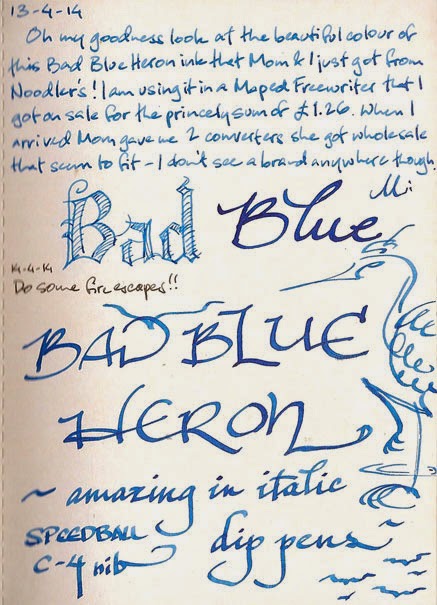 13-4-14
Oh my goodness look at the beautiful colour of
this Bad Blue Heron ink that Mom & I just got from
Noodler's! I am using it in a Maped Freewriter that I
got on sale for the princely sum of £1.26. When I
arrived Mom gave me 2 converters she got wholesale
that seem to fit - I don't see a brand anywhere though.
Bad Blue
14-4-14
Do some fire escapes!!
BAD BLUE
HERON
~ amazing in italic
SPEEDBALL
C-4 nib
dip pens ~